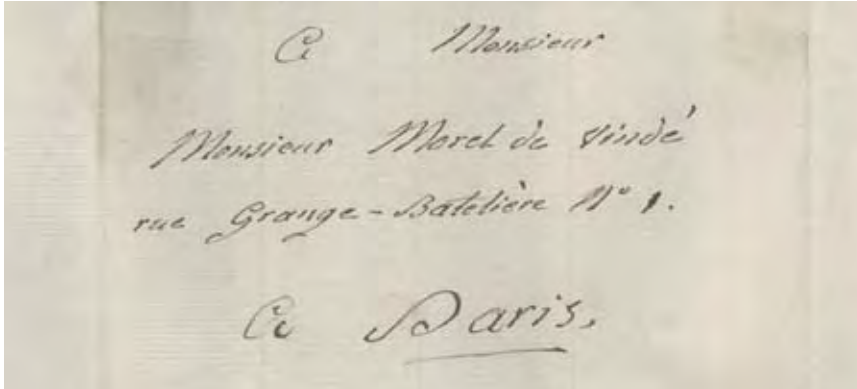 A Monsieur
Monsieur Morel de Vindé
rue Grange-Batelière N° 1.
A Paris,